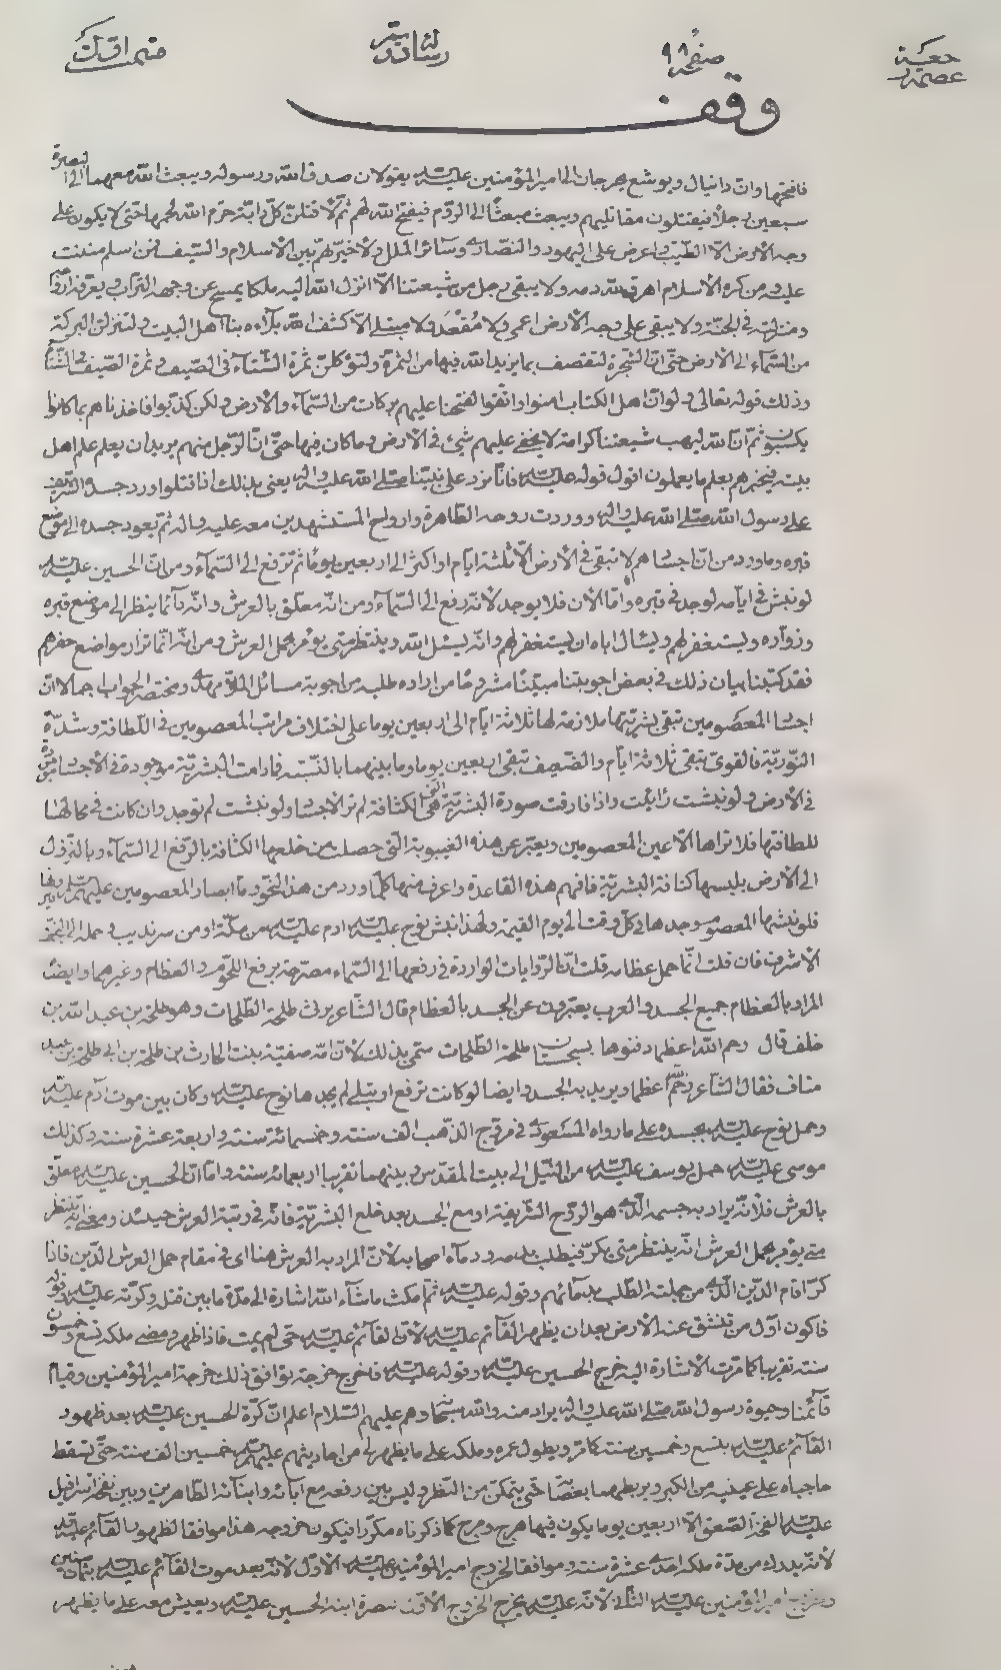 صفحة ٩٨
وقف
فافتحها وان دانيال ويوشع يخرجان الى امير المؤمنين عليه السلام يقولان صدق الله ورسوله ويبعث الله معهما الى البصرة
سبعين رجلا فيقتلون مقاتليهم ويبعث مبعثا الى الروم فيفتح الله لهم ثم لاقتلن كل دابة حرم الله لحمها حتى لا يكون على
وجه الارض الا الطيب واعرض على اليهود والنصارى وسائر الملل ولاخيرنهم بين الاسلام والسيف فمن اسلم مننت
عليه ومن كره الاسلام اهرق الله دمه ولا يبقى رجل من شيعتنا الا انزل الله اليه ملكا يمسح عن وجهه التراب ويعرفه ازواجه
ومنزلته في الجنة ولا يبقى على وجه الارض اعمى ولا مقعد ولا مبتلى الا كشف الله بلاءه بنا اهل البيت ولتنزلن البركة
من السماء الى الارض حتى ان الشجرة لتقصف بما يزيد الله فيها من الثمرة ولتؤكلن ثمرة الشتاء في الصيف وثمرة الصيف في الشتاء
وذلك قوله تعالى ولو ان اهل الكتاب امنوا واتقوا لفتحنا عليهم بركات من السماء والارض ولكن كذبوا فاخذناهم بما كانوا
يكسبون ثم ان الله ليهب شيعتنا كرامة لا يخفى عليهم شئ في الارض وما كان فيها حتى ان الرجل منهم يريد ان يعلم علم اهل
بيته فيخبرهم بعلم ما يعملون اقول قوله عليه السلام فانا نرد على نبينا صلى الله عليه واله يعني بذلك اذا قتلوا ورد جسده الشريف
على رسول الله صلى الله عليه واله ووردت روحه الطاهرة وارواح المستشهدين معه عليه واله ثم يعود جسده الى موضع
قبره وما ورد من ان اجسادهم لا تبقى في الارض الا ثلثة ايام او اكثر الى اربعين يوما ثم ترفع الى السماء ومن ان الحسين عليه السلام
لو نبش في ايامه لوجد في قبره واما الان فلا يوجد لانه رفع الى السماء ومن انه معلق بالعرش وانه دائما ينظر الى موضع قبره
وزواره ويستغفر لهم ويسئل اباه ان يستغفر لهم وانه يسئل الله وينتظر متى يؤمر بحمل العرش ومن انه انما تزار مواضع حفرهم
فقد كتبنا بيان ذلك في بعض اجوبتنا مبينا مشروحا من اراده طلبه من اجوبة مسائل الملا مهدي ومختصر الجواب اجمالا ان
اجساد المعصومين تبقى بشريتها ملازمة لها ثلاثة ايام الى اربعين يوما على اختلاف مراتب المعصومين في اللطافة وشدة
النورية فالقوي تبقى ثلاثة ايام والضعيف تبقى اربعين يوما وما بينهما بالنسبة فما دامت البشرية موجودة في الاجساد
في الارض ولو نبشت رايت واذا فارقت صورة البشرية التي هي الكثافة لم تر الاجساد ولو نبشت لم توجد وان كانت في محالها
للطافتها فلا تراها الا عين المعصومين ويعبر عن هذه الغيبوبة التي حصلت من خلعها الكثافة بالرفع الى السماء وبالنزول
الى الارض بلبسها كثافة البشرية فافهم هذه القاعدة واعرف منها كلما ورد من هذا النحو وما ابصار المعصومين عليهم السلام
فلو نبشها المعصوم وجدها في كل وقت الى يوم القيمة ولهذا نبش نوح عليه السلام ادم عليه السلام من مكة او من سرنديب وحمله الى النجف
الاشرف فان قلت انما حمل عظامه قلت ان الروايات الواردة في رفعها الى السماء مصرحة برفع اللحوم والعظام وغيرهما وايضا
المراد بالعظام جميع الجسد والعرب يعبرون عن الجسد بالعظام قال الشاعر يرثي طلحة الطلحات وهو طلحة بن عبد الله بن
خلف قال رحم الله اعظما دفنوها بسجستان طلحة الطلحات سمي بذلك لان امه صفية بنت الحارث بن طلحة بن ابي طلحة بن عبد
مناف فقال الشاعر رحم الله اعظما ويريد به الجسد وايضا لو كانت ترفع او تبلى لم يجدها نوح عليه السلام وكان بين موت ادم عليه السلام
وحمل نوح عليه السلام بجسده على ما رواه المسعودي في مروج الذهب الف سنة وخمسمائة سنة واربعة عشرة سنة وكذلك
موسى عليه السلام حمل يوسف عليه السلام من النيل الى بيت المقدس وبينهما تقريبا اربعمائة سنة واما ان الحسين عليه السلام معلق
بالعرش فلانه يراد به جسمه الذي هو الروح الشريفة او مع الجسد بعد خلع البشرية فانه في رتبة العرش حينئذ ومعنى انه ينتظر
متى يؤمر بحمل العرش انه ينتظر متى يكر فيطلب بدمه ودماء اصحابه لان المراد به العرش هنا اي في مقام حمل العرش الدين فاذا
كر اقام الدين الذي من جملته الطلب بدمائهم وقوله عليه السلام ثم مكث ما شاء الله اشارة الى مدة ما بين قتله وكرته عليه السلام وقوله
فاكون اول من تنشق عنه الارض بعد ان يظهر القائم عليه السلام لان القائم عليه السلام حي لم يمت فاذا ظهر ومضى ملكه تسع وخمسون
سنة تقريبا كما مرت الاشارة اليه خرج الحسين عليه السلام وقوله عليه السلام فاخرج خرجة يوافق ذلك خرجة امير المؤمنين وقيام
قائمنا وحيوة رسول الله صلى الله عليه واله يراد منه والله سبحانه وهم عليهم السلام اعلم ان كرة الحسين عليه السلام بعد ظهور
القائم عليه السلام بتسع وخمسين سنة كما مر ويطول عمره وملكه على ما يظهر لي من احاديثهم عليهم السلام خمسين الف سنة حتى تسقط
حاجباه على عينيه من الكبر ويربطهما بعصابة حتى يتمكن من النظر وليس بين رفعه مع ابائه وابنائه الطاهرين وبين نفخ اسرافيل
عليه السلام نفخة الصعق الا اربعين يوما يكون فيها هرج ومرج كما ذكرناه مكررا فيكون خروجه هذا موافقا لظهور القائم عليه السلام
لانه يدرك من مدة ملكه احدى عشرة سنة وموافقا لخروج امير المؤمنين عليه السلام الاول لانه بعد موت القائم عليه السلام بثمان سنين
وخروج امير المؤمنين عليه السلام الثاني لانه عليه السلام يخرج الخروج الاول لنصرة ابنه الحسين عليه السلام ويعيش معه على ما يظهر